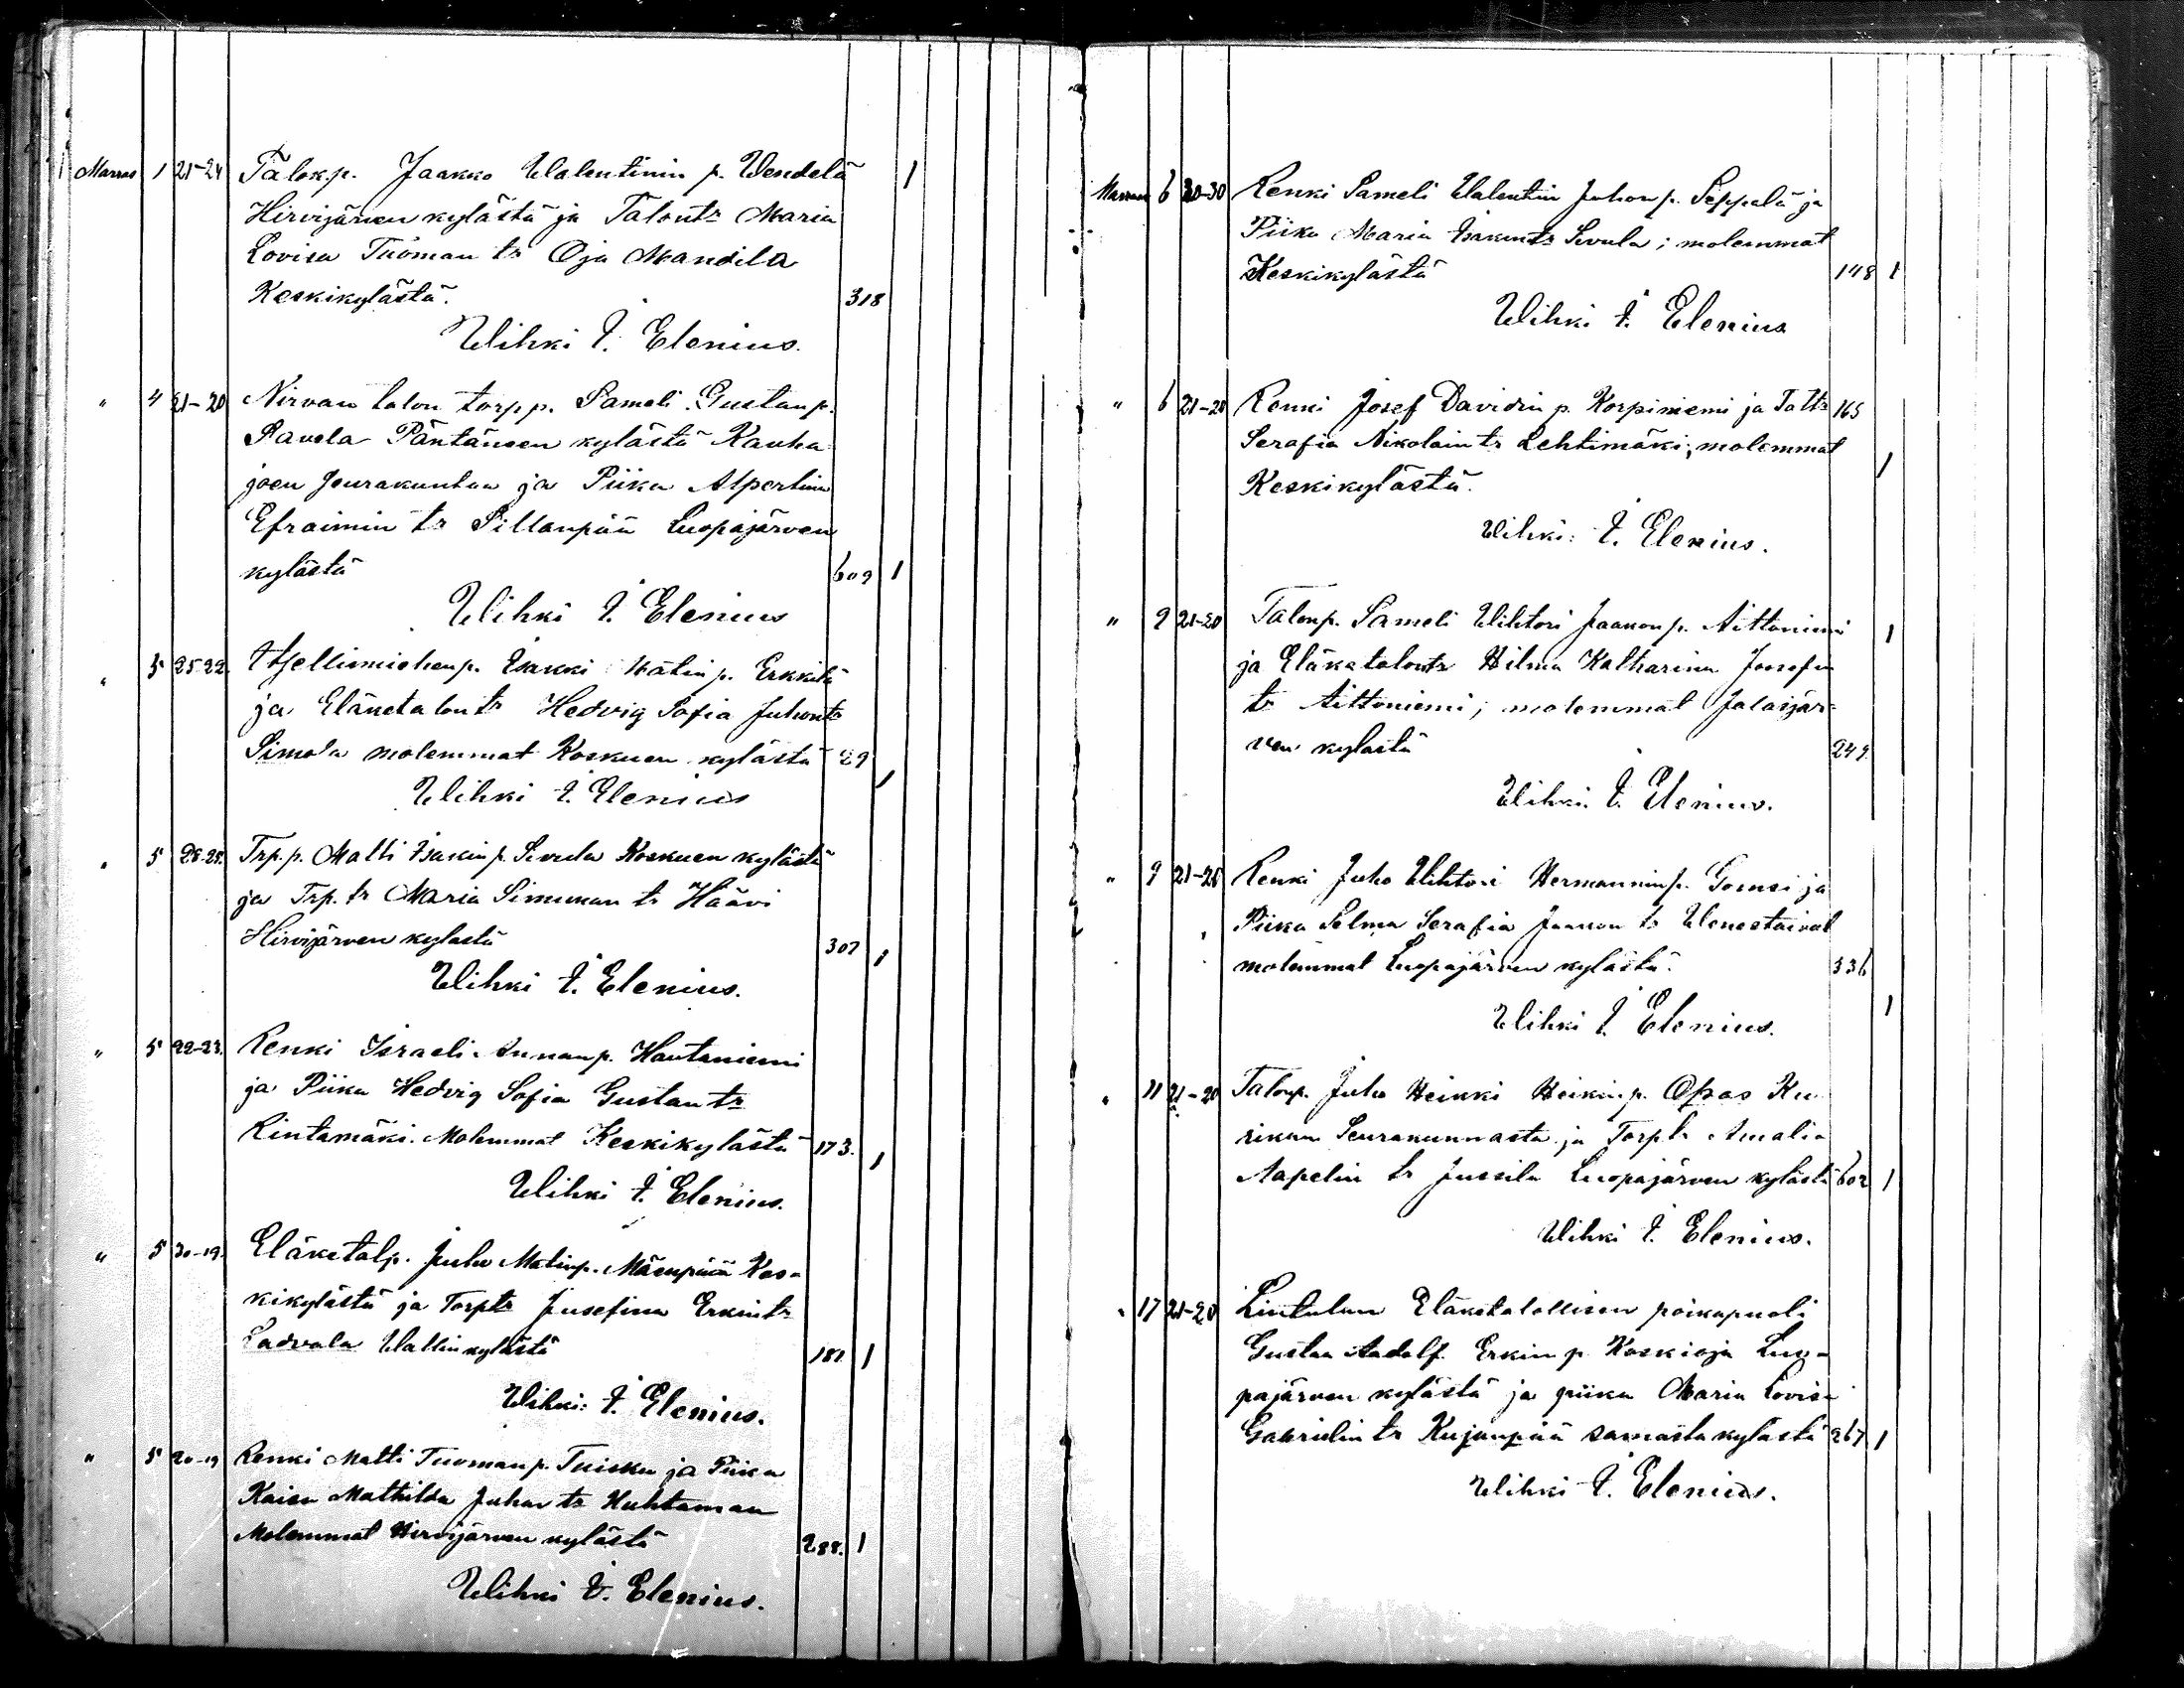 Marras 1 21-24 Talokp. Jaakko Walentinin p. Wendelä 1
Hirvijärven kylästä ja Talontr Maria
Lovisa Tuoman tr Oja Mandila
Keskikylästä. 318
Wihki I. Elenius.
" 4 21-20 Nirvan talon torpp. Sameli Gustan p.
Ravela Päntäneen kylästä Kauha-
joen Seurakuntaa ja Piika Alpertina
Efraimin tr Sillanpää Luopajärven
kylästä 609 1
Wihki I. Elenius
" 5 25-22. Itsellismiehen p. Isakki Matin p. Erkkilä
ja Eläketalontr Hedvig Sofia Juhontr
Simola molemmat Koskuen kylästä 29 1
Wihki I. Elenius
" 5 28-25. Trp. p. Matti Isakin p. Sivula Koskuen kylästä
ja Trp. tr Maria Simunan tr Häävi
Hirvijärven kylästä 307 1
Wihki I. Elenius.
" 5 22-23. Renki Israeli Annan p. Hautaniemi
ja Piika Hedvig Sofia Gustantr
Rintamäki. Molemmat Keskikylästä 173. 1
Wihki I. Elenius.
" 5 30-19. Eläketalp. Juho Matinp. Mäenpää Kes-
kikylästä ja Torptr Jusefina Erkintr
Ladvala Wallinkylästä 187 1
Wihki: I. Elenius.
" 5 20-19 Renki Matti Tuomanp. Tuisku ja Piika
Kaisa Mathilda Juhan tr Huhtaman
Molemmat Hirvijärven kylästä 288. 1
Wihki I. Elenius.
Marras 6 20-30 Renki Sameli Walentin Juhonp. Seppelä ja
Piika Maria Isakintr Sivula; molemmat
Keskikylästä 148 1
Wihki I. Elenius
" 6 21-28 Renki Josef Davidin p. Korpiniemi ja Taltr 165
Serafia Nikolain tr Lehtimäki; molemmat 1
Keskikylästä.
Wihki: I. Elenius.
" 9 21-20 Talonp. Sameli Wihtori Jaakonp. Aittoniemi 1
ja Eläketalontr Hilma Katharina Joosefin
tr Aittoniemi; molemmat Jalasjär-
ven kylästä 249
Wihki. I. Elenius.
" 9 21-26 Renki Juho Wihtori Hermanninp. Gomsi ja
Piika Selma Serafia Jaakon tr Wenestaival
molemmat Luopajärven kylästä. 336
Wihki I. Elenius. 1
" 11 21-20 Talonp. Juho Heikki Heikinp. Opas Ku-
rikan Seurakunnasta ja Torptr Amalia
Aapelin tr Jussila Luopajärven kylästä 602 1
Wihki I. Elenius.
" 17 21-20 Lintulan Eläketalollisen poikapuoli
Gustaa Aadolf. Erkin p. Koskioja Luo-
pajärven kylästä ja piika Maria Lovisa
Gabrielin tr Kujanpää samasta kylästä 267 1
Wihki I. Elenius.